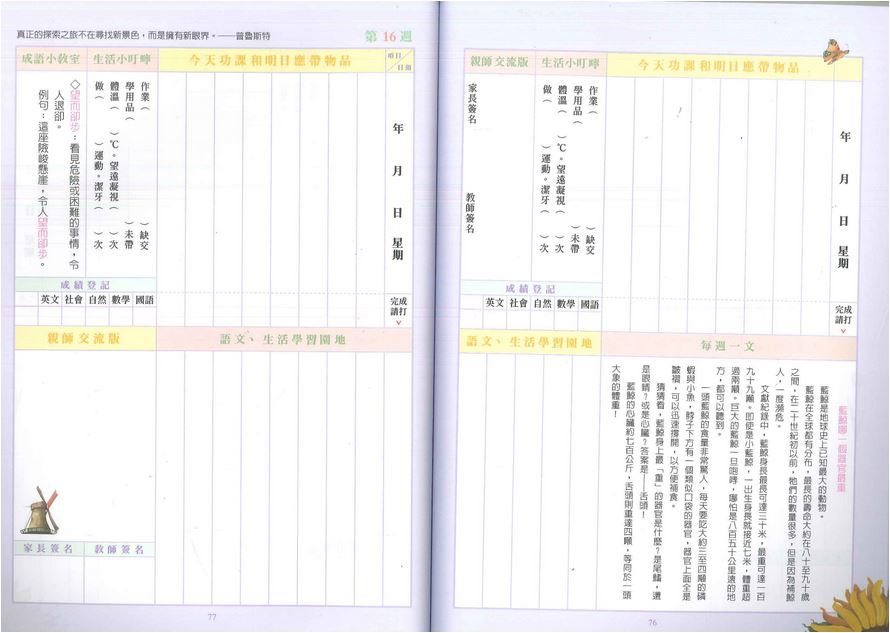 年 月 日 星期
完成請打ˇ
今天功課和明日應帶物品
生活小叮嚀
作業( )缺交
學用品( )未帶
體溫( )℃。望遠凝視( )次
做( )運動。潔牙( )次
親師交流版
家長簽名
教師簽名
成績登記
英文 社會 自然 數學 國語
每週一文
藍鯨哪一個器官最重
藍鯨是地球史上已知最大的動物。
藍鯨在全球都有分布,最長的壽命大約在八十至九十歲
之間,在二十世紀初以前,牠們的數量很多,但是因為補鯨
人,一度瀕危。
文獻紀錄中,藍鯨身長最長可達三十米,最重可達一百
九十九噸。即使是小藍鯨,一出生身長就接近七米,體重超
過兩噸。巨大的藍鯨一旦咆哮,哪怕是八百五十公里遠的地
方,都可以聽到。
一頭藍鯨的食量非常驚人,每天要吃大約三至四噸的磷
蝦與小魚,脖子下方有一個類似口袋的器官,器官上面全是
皺褶,可以迅速撐開,以方便補食。
猜猜看,藍鯨身上最「重」的器官是什麼?是尾鰭,還
是眼睛?或是心臟?答案是——舌頭!
藍鯨的心臟約七百公斤,舌頭則重達四噸,等同於一頭
大象的體重!
語文、生活學習園地
76
真正的探索之旅不在尋找新景色,而是擁有新眼界。——普魯斯特
第16週
項目/日期
年 月 日 星期
完成請打ˇ
今天功課和明日應帶物品
生活小叮嚀
作業( )缺交
學用品( )未帶
體溫( )℃。望遠凝視( )次
做( )運動。潔牙( )次
成語小教室
◇望而卻步:看見危險或困難的事情,令
人退卻。
例句:這座險峻懸崖,令人望而卻步。
成績登記
英文 社會 自然 數學 國語
語文、生活學習園地
親師交流版
家長簽名 教師簽名
77